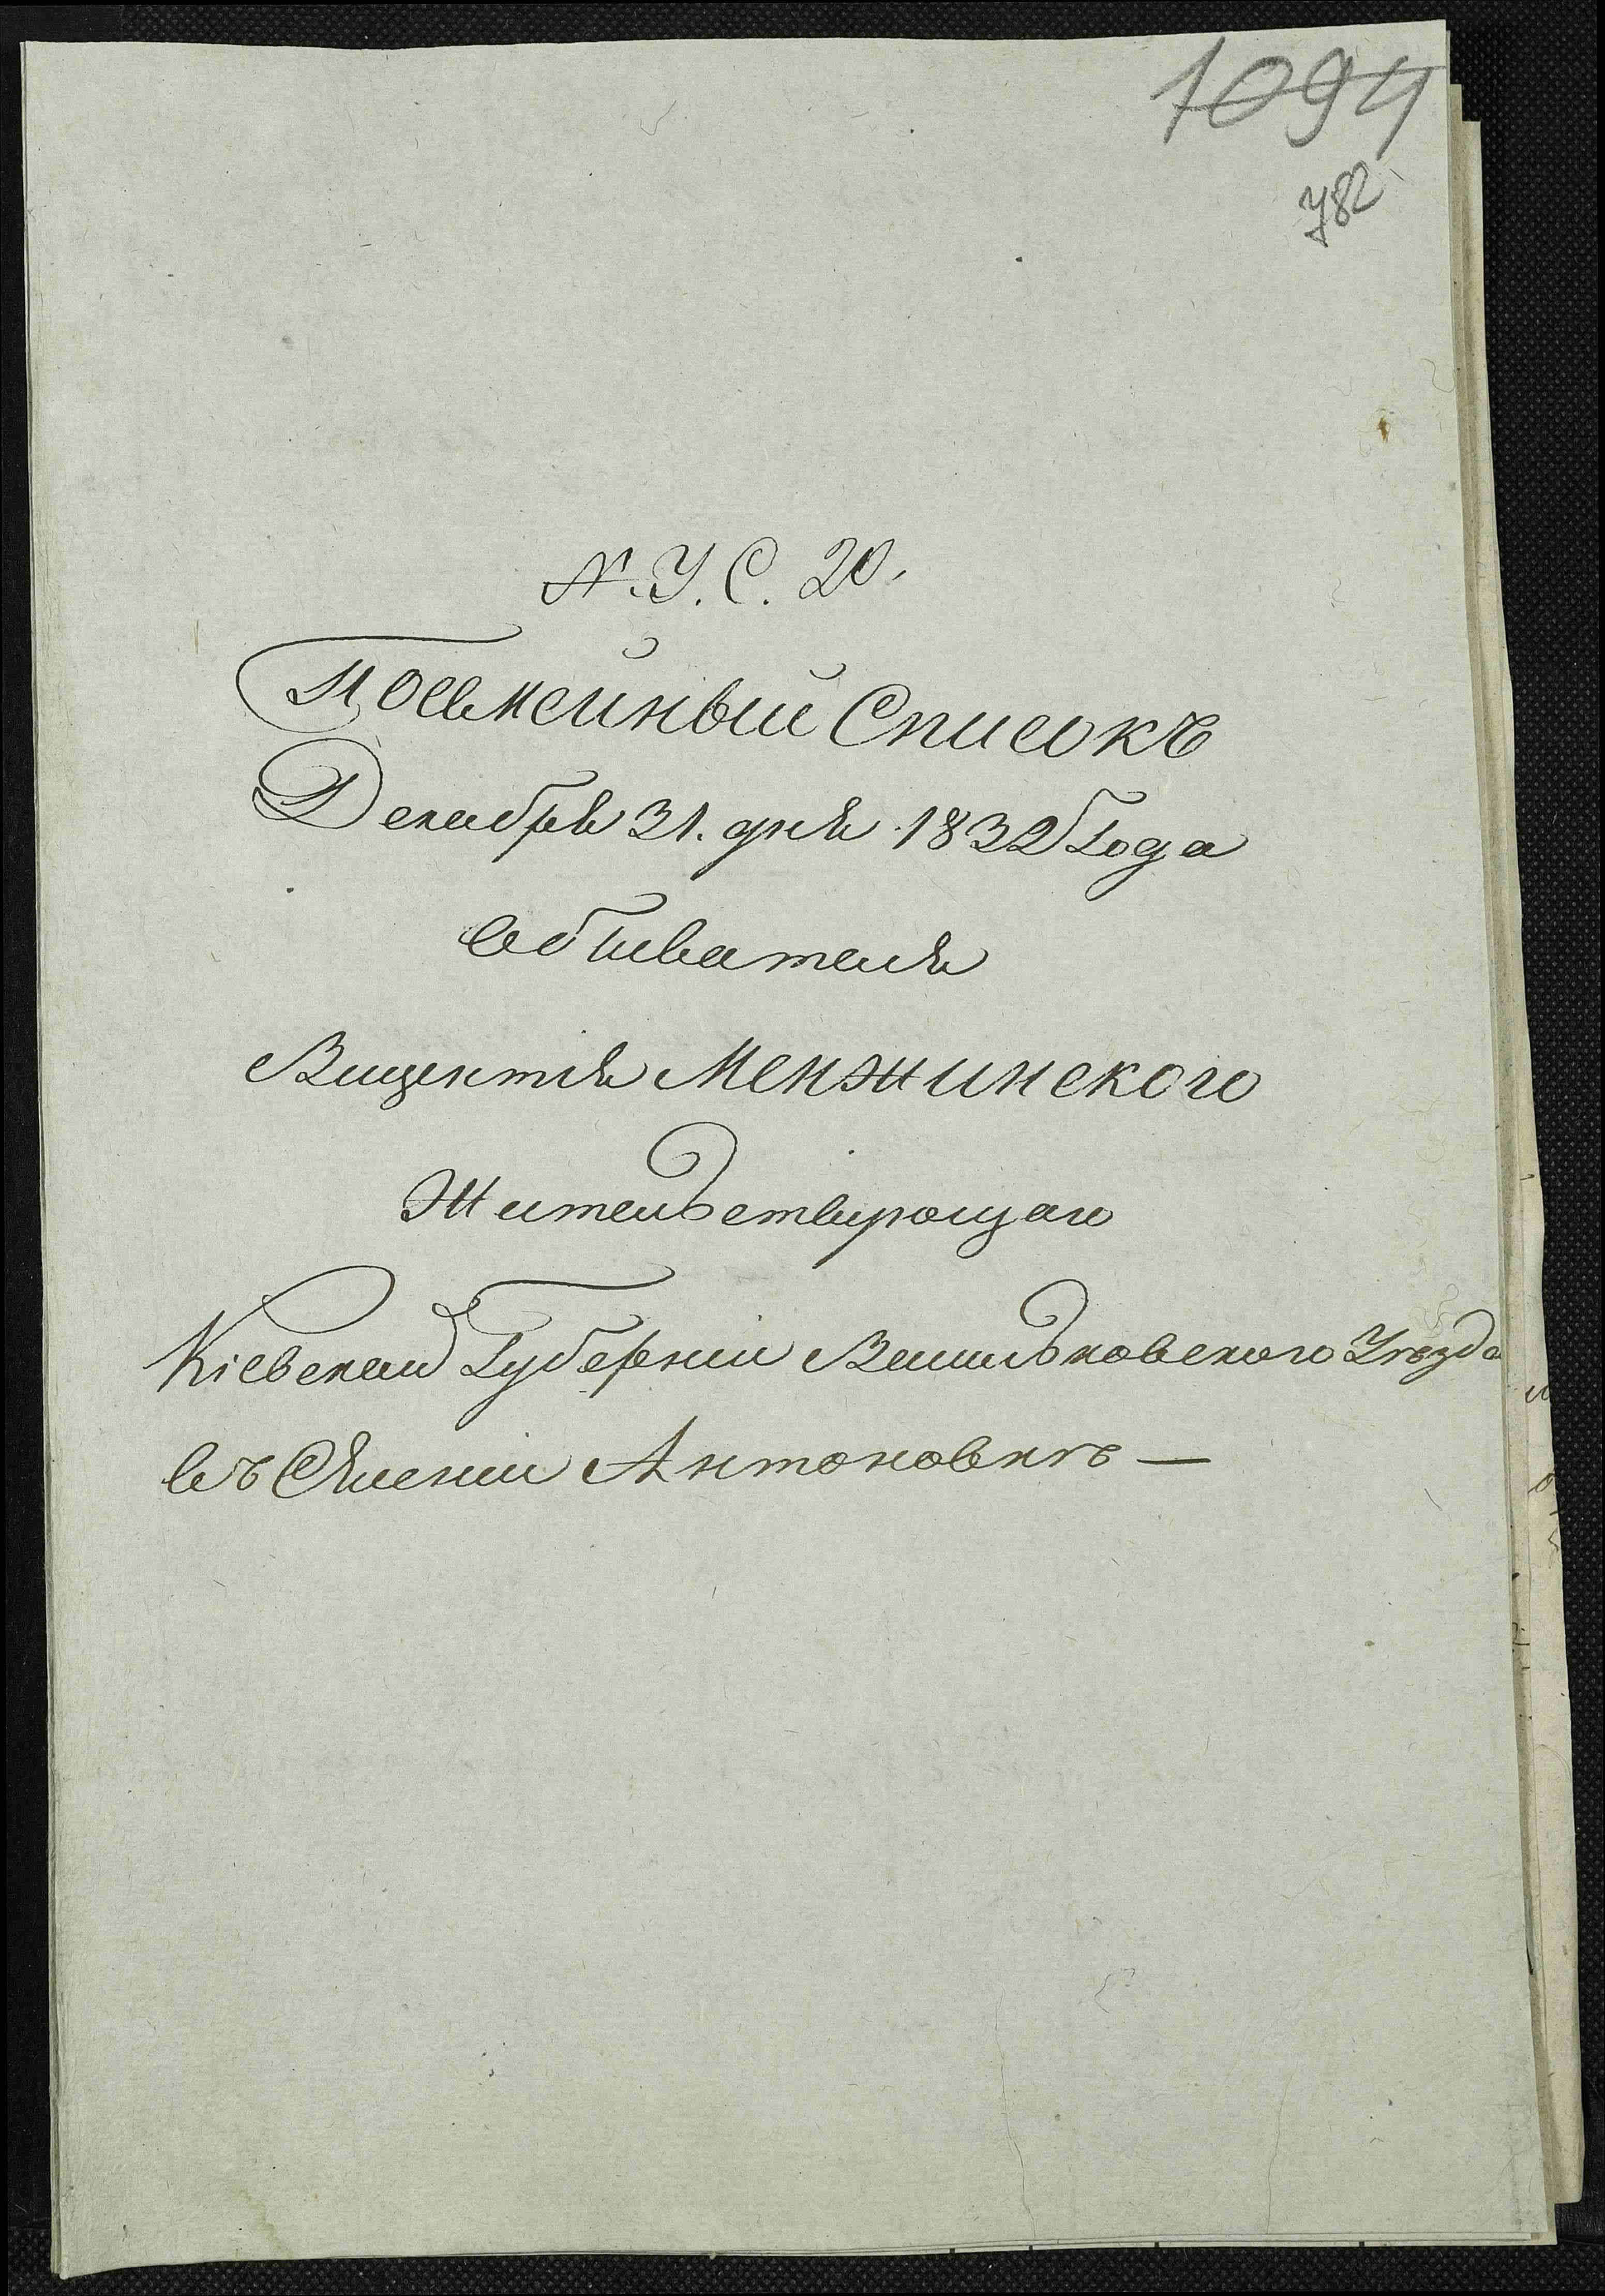 1094
782
N. У. С. 20.
Посемейный Списокъ
Декабря 31. дня 1832 Года
обивателя
Вицентія Менжинского
Жительствующаго
Кіевской Губерніи Васильковского Уѣзда
въ Селеніи Антоновкѣ —